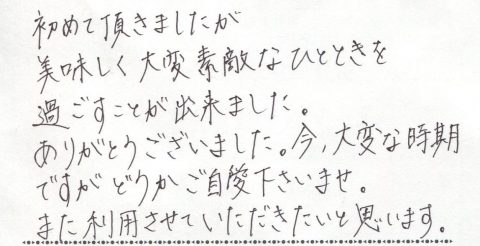 初めて頂きましたが
美味しく大変素敵なひとときを
過ごすことが出来ました。
ありがとうございました。今、大変な時期
ですがどうかご自愛下さいませ。
また利用させていただきたいと思います。